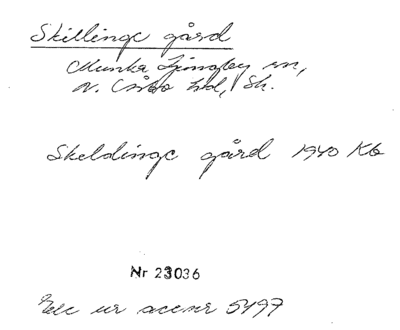 Skillinge gård
Munka Ljungby sn,
N. Åsbo hd, Sk.
Skeldinge gård 1940 Kb
Nr 23036
Exc ur accnr 5497